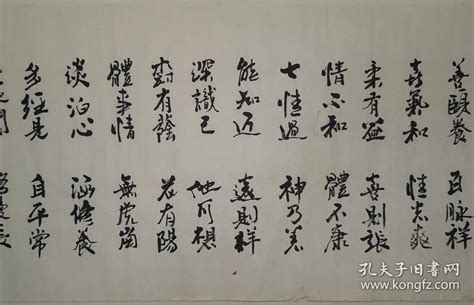 善頤養 百脉祥
喜氣和 性志爽
柔有益 喜則張
情不和 體不康
七情過 神乃差
能知近 遠則祥
深識己 他可想
對有蔭 花有陽
體事情 無虎崗
淡泊心 涵修養
多經見 自平常
孔夫子旧书网
www.kongfz.com